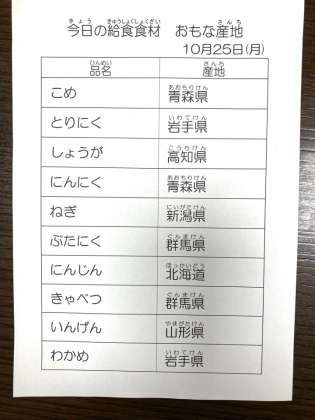 今日の給食食材　おもな産地
10月25日(月)
品名　産地
こめ　青森県
とりにく　岩手県
しょうが　高知県
にんにく　青森県
ねぎ　新潟県
ぶたにく　群馬県
にんじん　北海道
きゃべつ　群馬県
いんげん　山形県
わかめ　岩手県